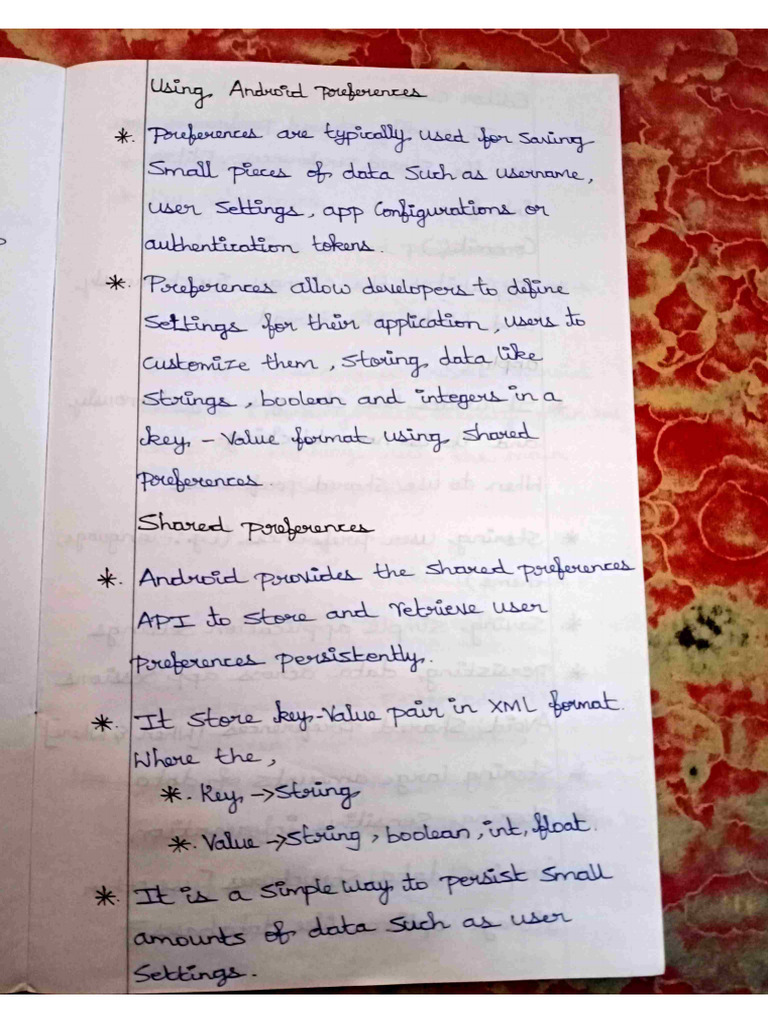 Using Android preferences
*. Preferences are typically used for saving
Small pieces of data such as username,
user settings, app Configurations or
authentication tokens.
*. Preferences allow developers to define
Settings for their application, users to
customize them, storing data like
strings, boolean and integers in a
key - value format using shared
preferences
Shared preferences
*. Android provides the shared preferences
API to store and retrieve user
preferences persistently.
*. It store key-value pair in XML format.
Where the,
*. Key → String
*. Value → String, boolean, int, float.
*. It is a simple way to persist small
amounts of data such as user
Settings.